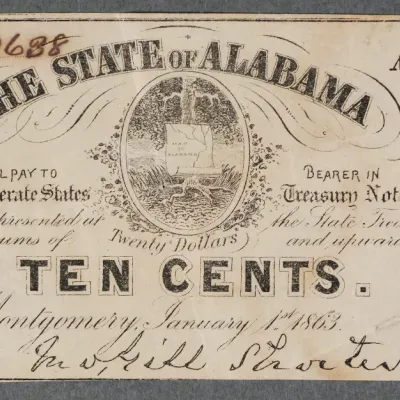 2688
THE STATE OF ALABAMA
MAP OF ALABAMA
LL PAY TO BEARER IN
erate States Treasury Not
presented at the State Trea
sums of Twenty Dollars and upward
TEN CENTS.
Montgomery, January 1st 1863.